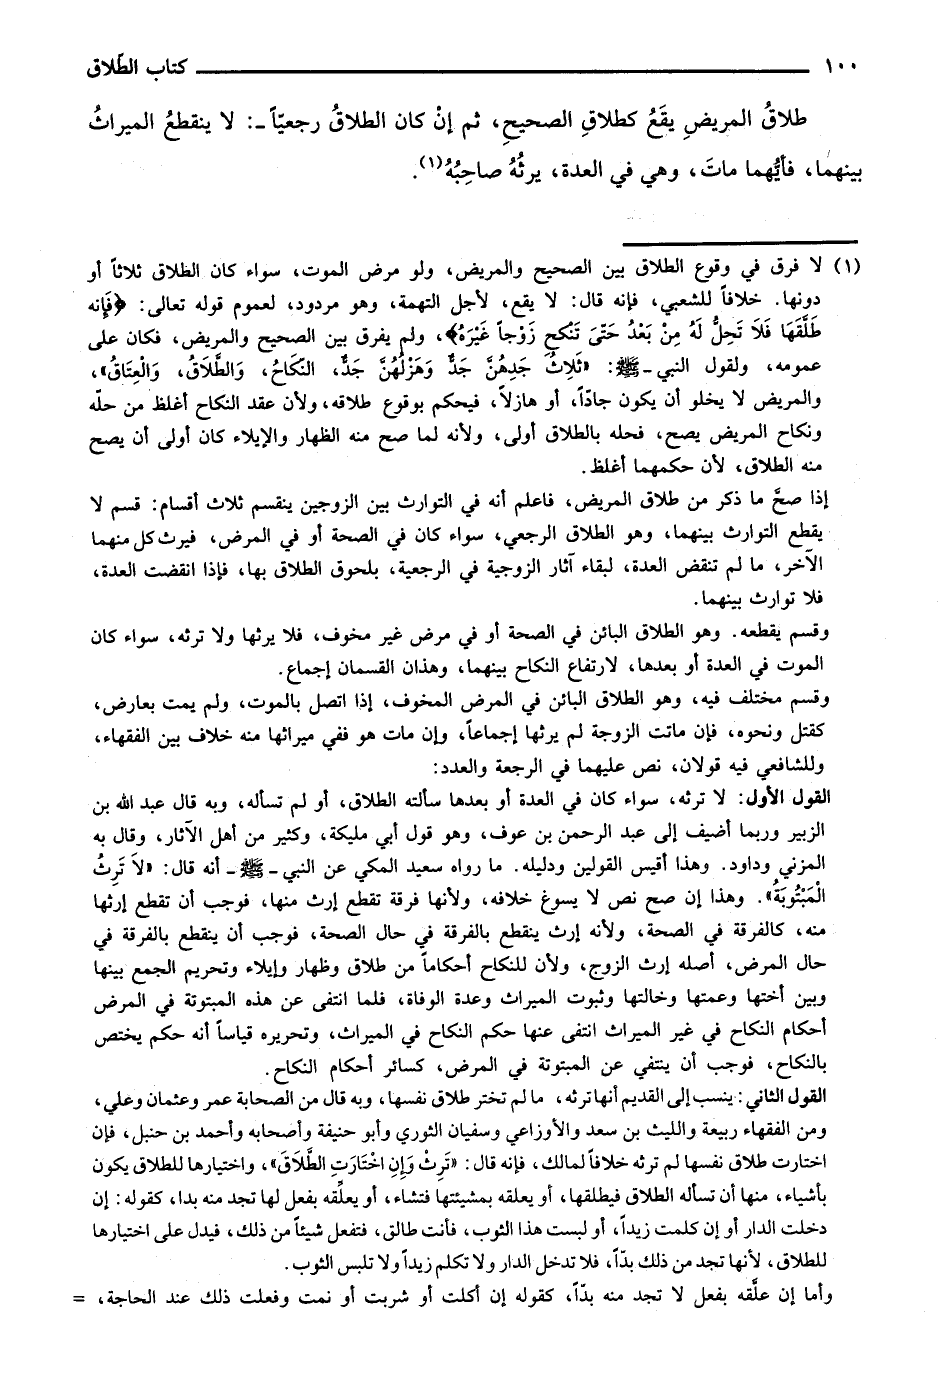 ١٠٠ كتاب الطّلاق
طلاقُ المريضِ يقَعُ كطلاقِ الصحيحِ، ثم إنْ كان الطلاقُ رجعيّاً ـ: لا ينقطعُ الميراثُ
بينهما، فأيُّهما ماتَ، وهي في العدة، يرثُهُ صاحِبُهُ(١).
(١) لا فرق في وقوع الطلاق بين الصحيح والمريض، ولو مرض الموت، سواء كان الطلاق ثلاثاً أو
دونها. خلافاً للشعبي، فإنه قال: لا يقع، لأجل التهمة، وهو مردود، لعموم قوله تعالى: ﴿فَإنه
طَلَّقَهَا فَلَا تَحِلُّ لَهُ مِنْ بَعْدُ حَتَّىَ تَنْكحِ زَوْجاً غَيْرَهُ﴾، ولم يفرق بين الصحيح والمريض، فكان على
عمومه، ولقول النبي ـ ﷺ: «ثَلَاثٌ جَدِهُنَّ جَدٌّ وَهَزْلُهُنَّ جَدٌّ، النّكَاحُ، وَالطَّلَاقُ، وَالْعِتَاقُ»،
والمريض لا يخلو أن يكون جادّاً، أو هازلاً، فيحكم بوقوع طلاقه، ولأن عقد النكاح أغلظ من حلّه
ونكاح المريض يصح، فحله بالطلاق أولى، ولأنه لما صح منه الظهار والإيلاء كان أولى أن يصح
منه الطلاق، لأن حكمهما أغلظ.
إذا صحَّ ما ذكر من طلاق المريض، فاعلم أنه في التوارث بين الزوجين ينقسم ثلاث أقسام: قسم لا
يقطع التوارث بينهما، وهو الطلاق الرجعي، سواء كان في الصحة أو في المرض، فيرث كل منهما
الآخر، ما لم تنقض العدة، لبقاء آثار الزوجية في الرجعية، بلحوق الطلاق بها، فإذا انقضت العدة،
فلا توارث بينهما.
وقسم يقطعه. وهو الطلاق البائن في الصحة أو في مرض غير مخوف، فلا يرثها ولا ترثه، سواء كان
الموت في العدة أو بعدها، لارتفاع النكاح بينهما، وهذان القسمان إجماع.
وقسم مختلف فيه، وهو الطلاق البائن في المرض المخوف، إذا اتصل بالموت، ولم يمت بعارض،
كقتل ونحوه، فإن ماتت الزوجة لم يرثها إجماعاً، وإن مات هو ففي ميراثها منه خلاف بين الفقهاء،
وللشافعي فيه قولان، نص عليهما في الرجعة والعدد:
القول الأول: لا ترثه، سواء كان في العدة أو بعدها سألته الطلاق، أو لم تسأله، وبه قال عبد الله بن
الزبير وربما أضيف إلى عبد الرحمن بن عوف، وهو قول أبي مليكة، وكثير من أهل الآثار، وقال به
المزني وداود. وهذا أقيس القولين ودليله. ما رواه سعيد المكي عن النبي ـ ﷺ ـ أنه قال: «لاَ تَرِثُ
الْمَبْتُوتَةُ». وهذا إن صح نص لا يسوغ خلافه، ولأنها فرقة تقطع إرث منها، فوجب أن تقطع إرثها
منه، كالفرقة في الصحة، ولأنه إرث ينقطع بالفرقة في حال الصحة، فوجب أن ينقطع بالفرقة في
حال المرض، أصله إرث الزوج، ولأن للنكاح أحكاماً من طلاق وظهار وإيلاء وتحريم الجمع بينها
وبين أختها وعمتها وخالتها وثبوت الميراث وعدة الوفاة، فلما انتفى عن هذه المبتوتة في المرض
أحكام النكاح في غير الميراث انتفى عنها حكم النكاح في الميراث، وتحريره قياساً أنه حكم يختص
بالنكاح، فوجب أن ينتفي عن المبتوتة في المرض، كسائر أحكام النكاح.
القول الثاني: ينسب إلى القديم أنها ترثه، ما لم تختر طلاق نفسها، وبه قال من الصحابة عمر وعثمان وعلي،
ومن الفقهاء ربيعة والليث بن سعد والأوزاعي وسفيان الثوري وأبو حنيفة وأصحابه وأحمد بن حنبل، فإن
اختارت طلاق نفسها لم ترثه خلافاً لمالك، فإنه قال: «تَرِثُ وَإِن اخْتَارَتِ الطَّلَاقَ»، واختيارها للطلاق يكون
بأشياء، منها أن تسأله الطلاق فيطلقها، أو يعلقه بمشيئتها فتشاء، أو يعلّقه بفعل لها تجد منه بدا، كقوله: إن
دخلت الدار أو إن كلمت زيداً، أو لبست هذا الثوب، فأنت طالق، فتفعل شيئاً من ذلك، فيدل على اختيارها
للطلاق، لأنها تجد من ذلك بدّاً، فلا تدخل الدار ولا تكلم زيداً ولا تلبس الثوب.
وأما إن علَّقه بفعل لا تجد منه بدّاً، كقوله إن أكلت أو شربت أو نمت وفعلت ذلك عند الحاجة، =